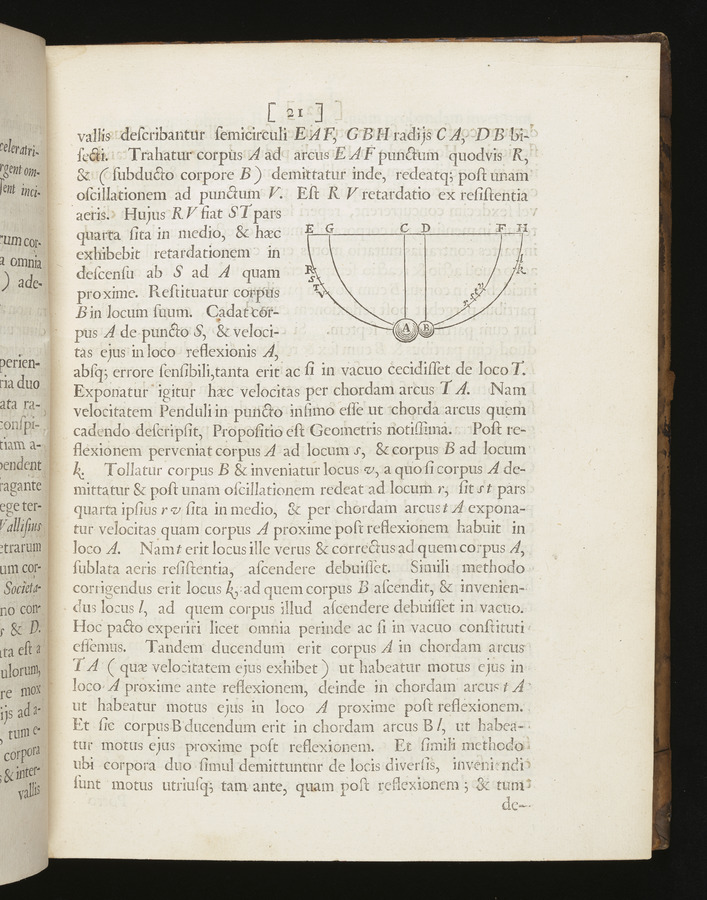 [ 21 ]
vallis deſcribantur ſemicirculi EAF, GBH radijs CA, DB bi-
ſecti. Trahatur corpus A ad arcus EAF punctum quodvis R,
& (ſubducto corpore B) demittatur inde, redeatq; poſt unam
oſcillationem ad punctum V. Eſt RV retardatio ex reſiſtentia
aeris. Hujus RV fiat ST pars
quarta ſita in medio, & hæc
exhibebit retardationem in
deſcenſu ab S ad A quam
proxime. Reſtituatur corpus
B in locum ſuum. Cadat cor-
pus A de puncto S, & veloci-
tas ejus in loco reflexionis A,
abſq; errore ſenſibili, tanta erit ac ſi in vacuo cecidiſſet de loco T.
Exponatur igitur hæc velocitas per chordam arcus TA. Nam
velocitatem Penduli in puncto infimo eſſe ut chorda arcus quem
cadendo deſcripſit, Propoſitio eſt Geometris notiſſima. Poſt re-
flexionem perveniat corpus A ad locum s, & corpus B ad locum
k. Tollatur corpus B & inveniatur locus v, a quo ſi corpus A de-
mittatur & poſt unam oſcillationem redeat ad locum r, ſit st pars
quarta ipſius rv ſita in medio, & per chordam arcus tA expona-
tur velocitas quam corpus A proxime poſt reflexionem habuit in
loco A. Nam t erit locus ille verus & correctus ad quem corpus A,
ſublata aeris reſiſtentia, aſcendere debuiſſet. Simili methodo
corrigendus erit locus k, ad quem corpus B aſcendit, & invenien-
dus locus l, ad quem corpus illud aſcendere debuiſſet in vacuo.
Hoc pacto experiri licet omnia perinde ac ſi in vacuo conſtituti
eſſemus. Tandem ducendum erit corpus A in chordam arcus
TA (quæ velocitatem ejus exhibet) ut habeatur motus ejus in
loco A proxime ante reflexionem, deinde in chordam arcus tA
ut habeatur motus ejus in loco A proxime poſt reflexionem.
Et ſic corpus B ducendum erit in chordam arcus Bl, ut habea-
tur motus ejus proxime poſt reflexionem. Et ſimili methodo
ubi corpora duo ſimul demittuntur de locis diverſis, inveniendi
ſunt motus utriuſq; tam ante, quam poſt reflexionem; & tum
de-
E G C D F H
R
S
T
V
A B
r s t v
l
k
celeratri-
rgent om-
ſent inci-
rum cor-
a omnia
) ade-
perien-
ria duo
ata ra-
conſpi-
tiam a-
pendent
ragante
ege ter-
Valliſius
etrarum
um cor-
Societa-
no con-
s & D.
ita eſt a
ulorum,
re mox
ijs ad a-
, tum e-
corpora
& inter-
vallis